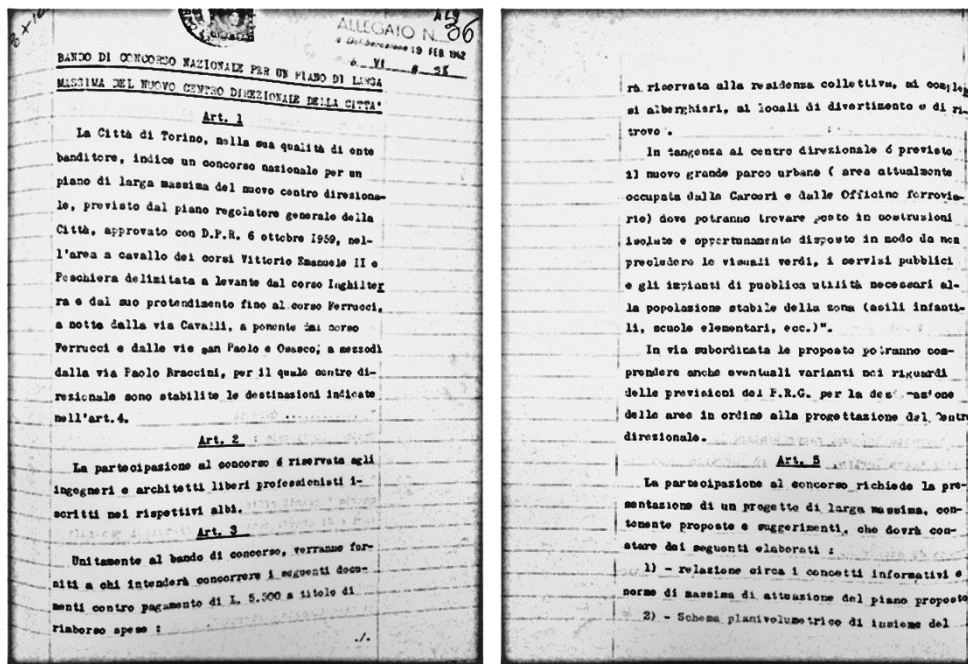 ALLEGATO N. 36
a Deliberazione 19 FEB. 1962
BANDO DI CONCORSO NAZIONALE PER UN PIANO DI LARGA
MASSIMA DEL NUOVO CENTRO DIREZIONALE DELLA CITTA'
Art. 1
La Città di Torino, nella sua qualità di ente
banditore, indice un concorso nazionale per un
piano di larga massima del nuovo centro direziona-
le, previsto dal piano regolatore generale della
Città, approvato con D.P.R. 6 ottobre 1959, nel-
l'area a cavallo dei corsi Vittorio Emanuele II e
Peschiera delimitata a levante dal corso Inghilter
ra e dal suo protendimento fino al corso Ferrucci,
a notte dalla via Cavalli, a ponente dai corso
Ferrucci e dalle vie san Paolo e Osasco, a mezzodì
dalla via Paolo Braccini, per il quale centro di-
rezionale sono stabilite le destinazioni indicate
nell'art.4.
Art. 2
La partecipazione al concorso é riservata agli
ingegneri e architetti liberi professionisti i-
scritti nei rispettivi albi.
Art. 3
Unitamente al bando di concorso, verranno for-
niti a chi intenderà concorrere i seguenti docu-
menti contro pagamento di L. 5.500 a titolo di
rimborso spese :
./.
rà riservata alla residenza collettiva, ai comples
si alberghieri, ai locali di divertimento e di ri-
trovo.
In tangenza al centro direzionale é previsto
il nuovo grande parco urbano ( area attualmente
occupata dalle Carceri e dalle Officine ferrovia-
rie) dove potranno trovare posto in costruzioni
isolate e opportunamente disposte in modo da non
precludere le visuali verdi, i servizi pubblici
e gli impianti di pubblica utilità necessari al-
la popolazione stabile della zona (asili infanti-
li, scuole elementari, ecc.)".
In via subordinata le proposte potranno com-
prendere anche eventuali varianti nei riguardi
delle previsioni del P.R.G. per la destinazione
delle aree in ordine alla progettazione del Centro
direzionale.
Art. 5
La partecipazione al concorso richiede la pre-
sentazione di un progetto di larga massima, con-
tenente proposte e suggerimenti, che dovrà con-
stare dei seguenti elaborati :
1) - relazione circa i concetti informativi e
norme di massima di attuazione del piano proposto
2) - Schema planivolumetrico di insieme del